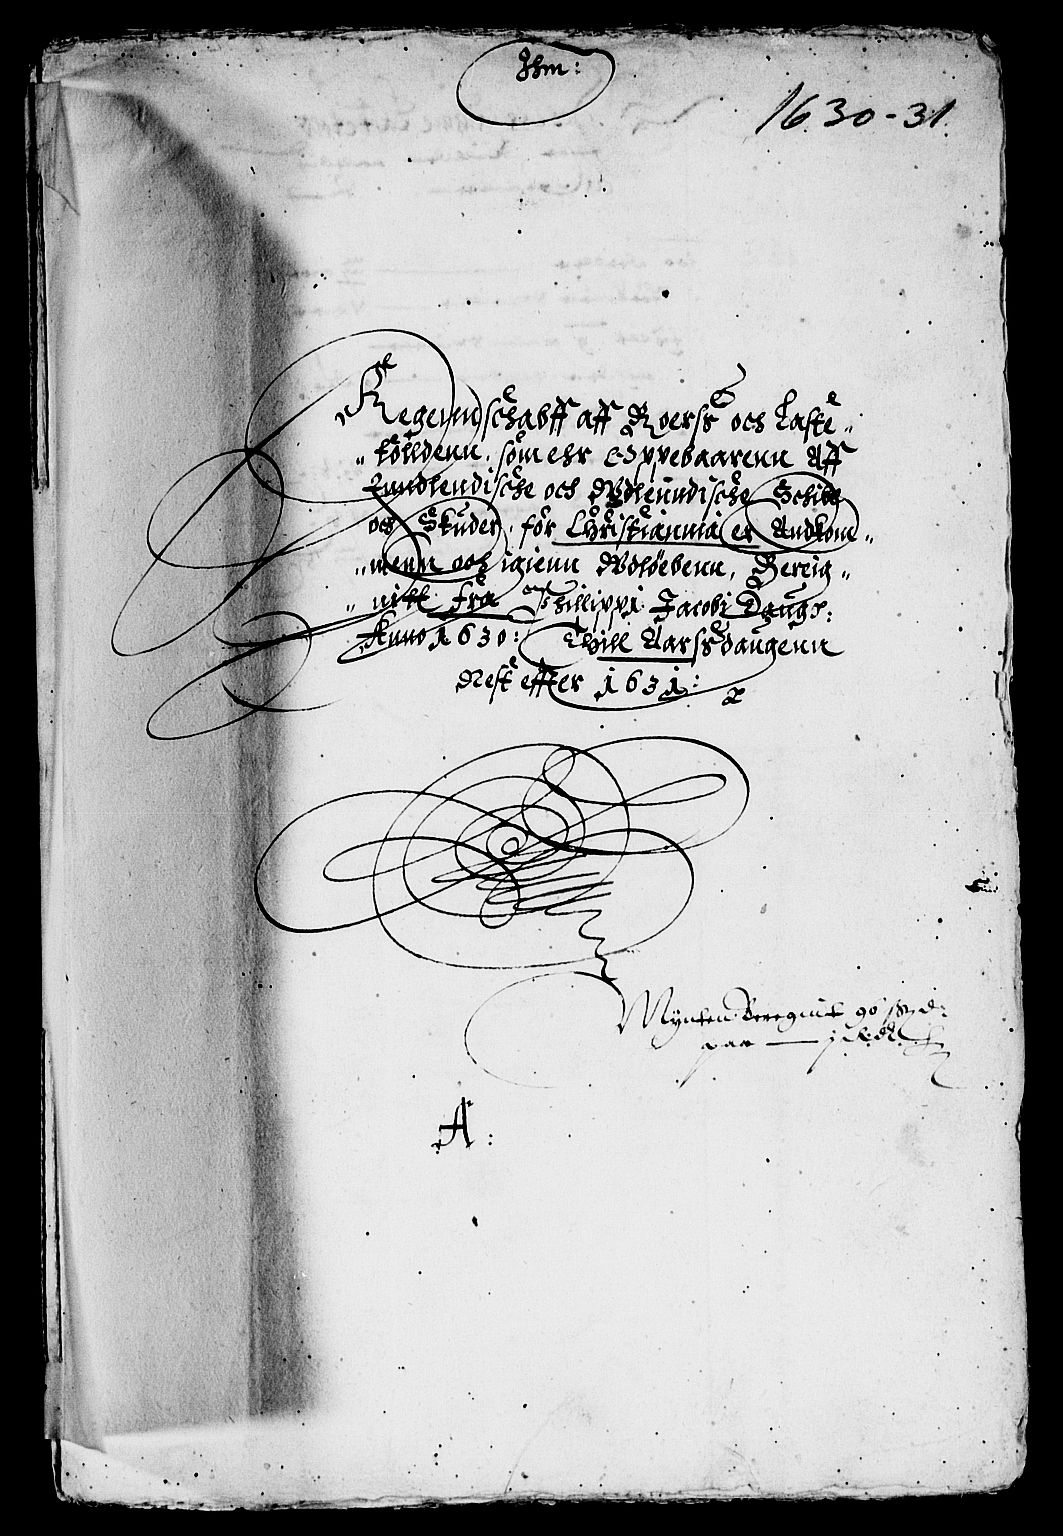 Jhm:
1630-31
Regennschabff aff Roerss och Laste„
„tolldenn, som ehr Oppebaarenn Aff
Jnndlendische och Wdlenndische Schibe
och Skuder, för Christiannia er Andkom„
„menn och igienn Wdlöebenn, Bereig„
„nitt fra Phillippi Jacobi Daugh:
Anno 1630: Thill Aarssdaugenn
Nest effter 1631:
Mynten Beregnit 96 sk d:
paa — 1 Rdr.
A: